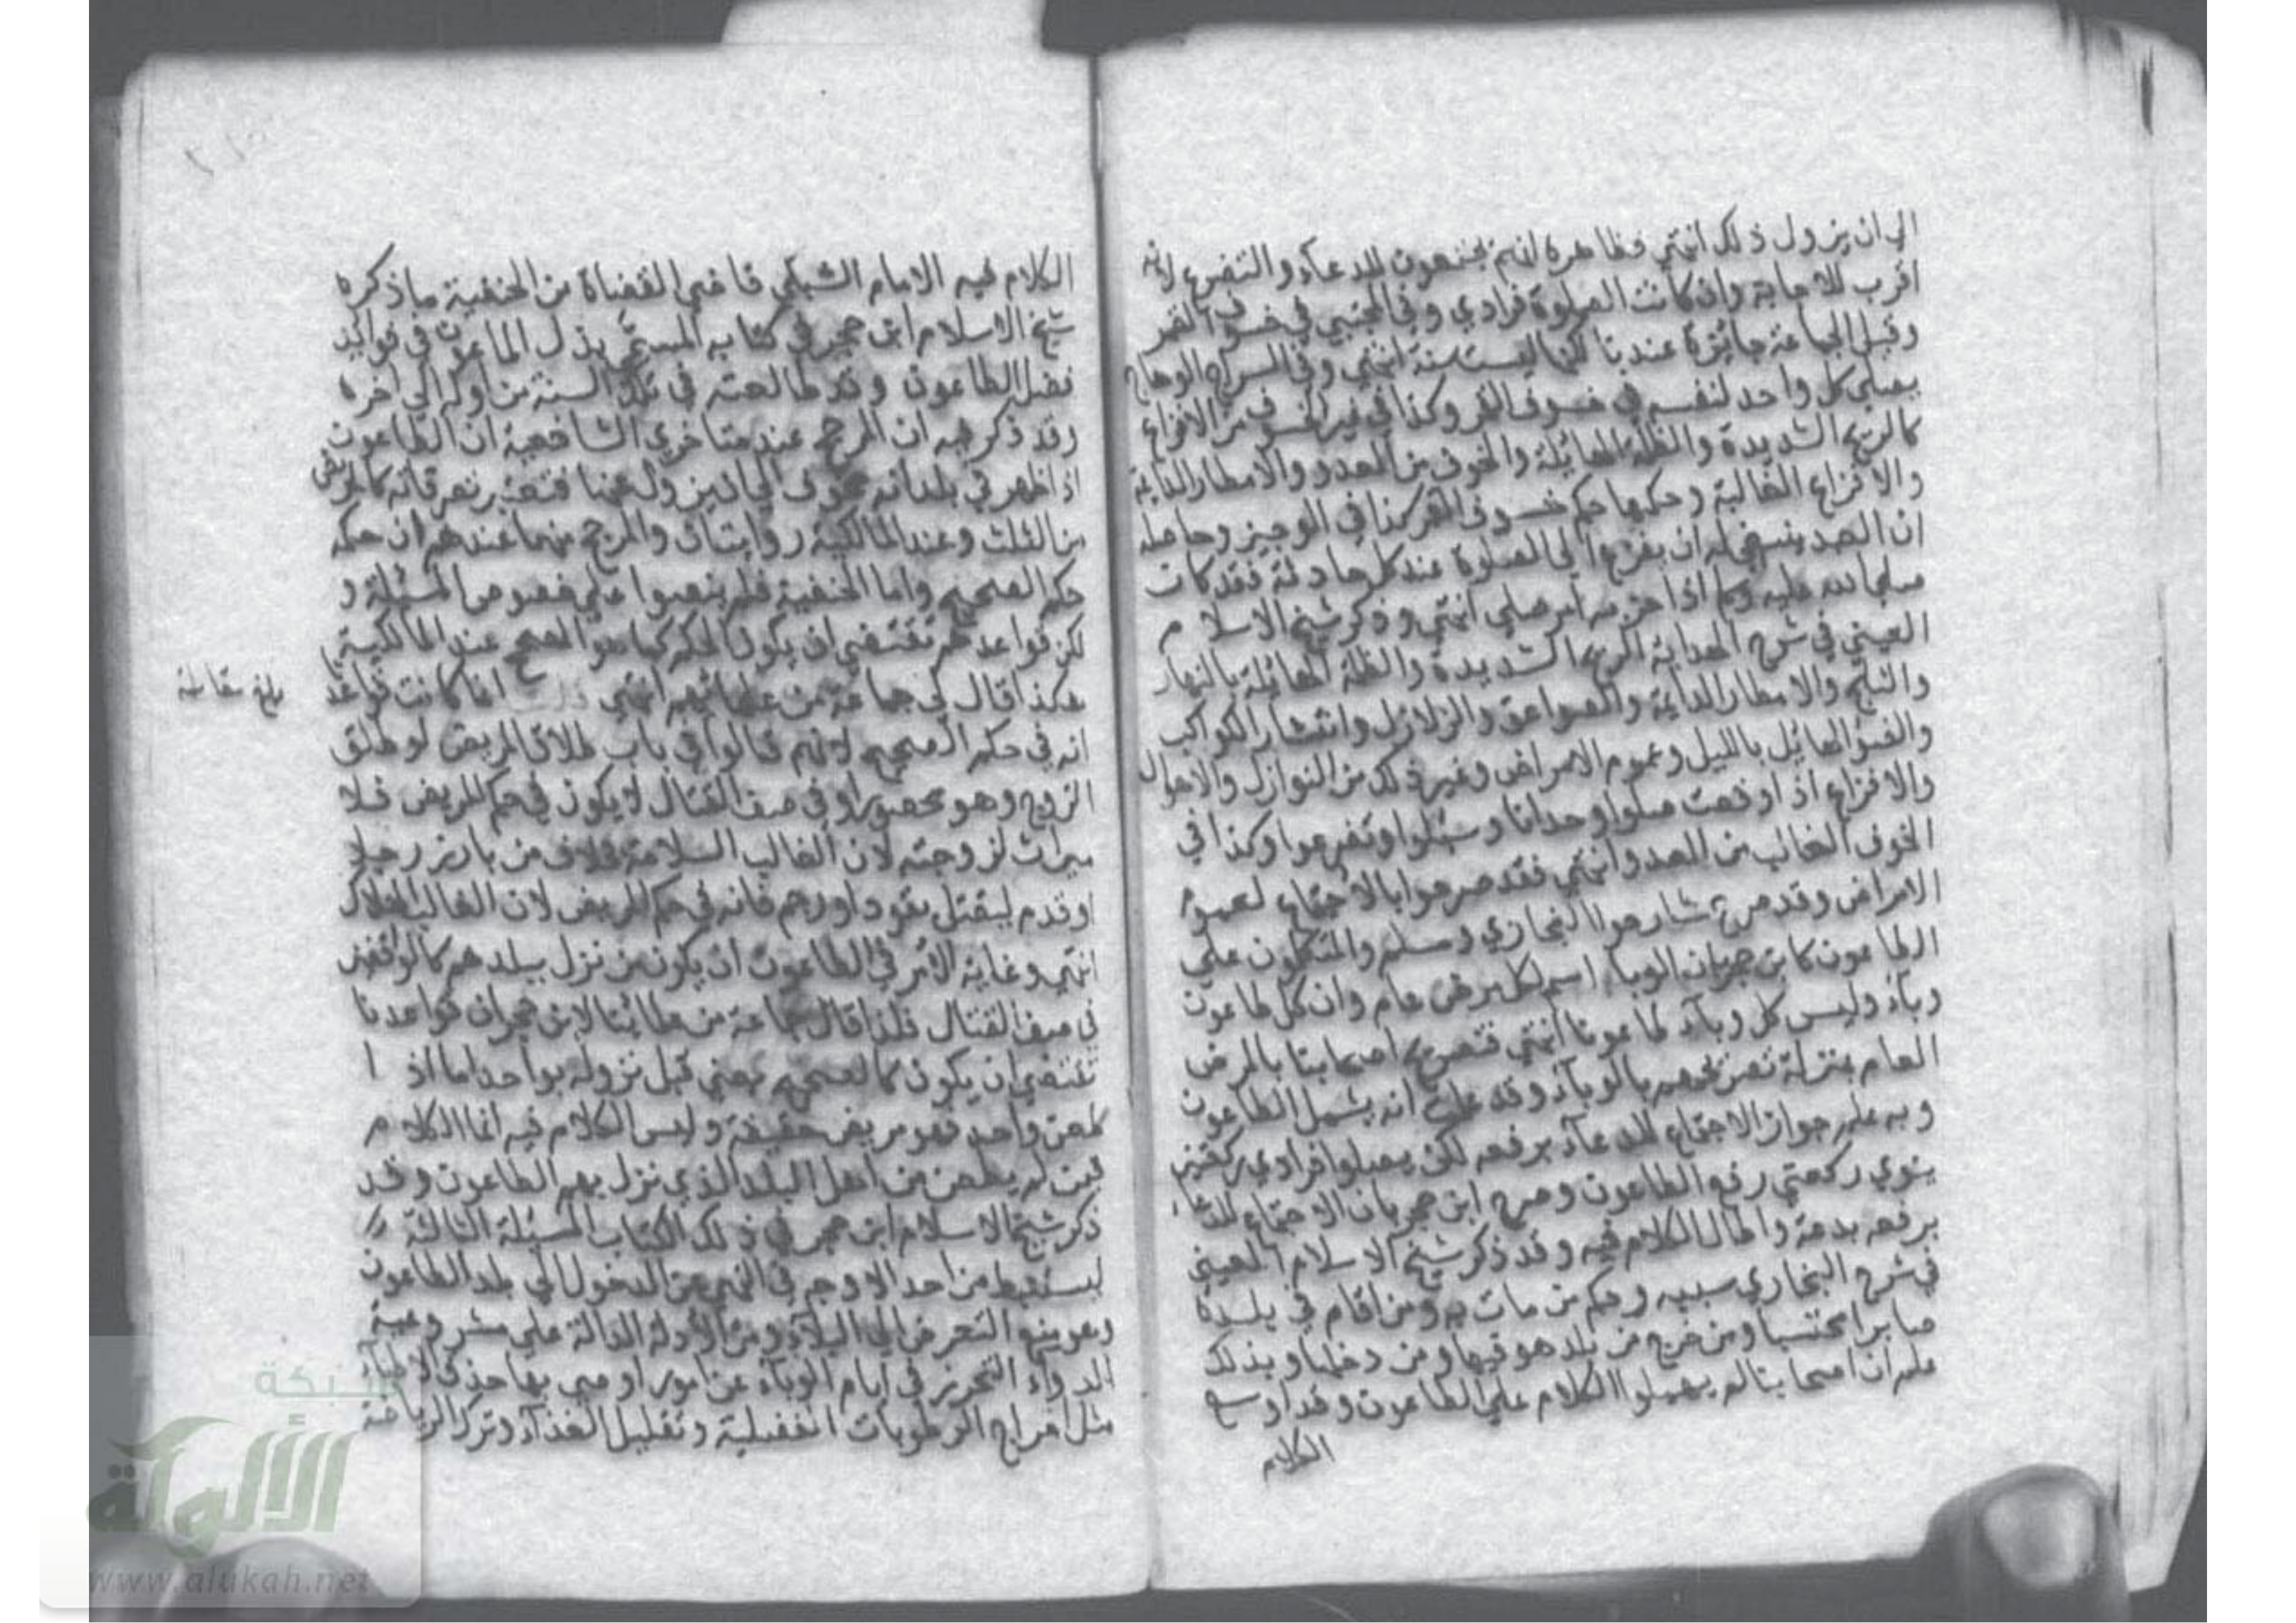 الى ان يزول ذلك انتهى فظاهره انهم يجتمعون للدعاء والتضرع لانه
اقرب للاجابة وان كانت الصلوة فرادي وفي المجتبي في خسوف القمر
وقيل الجماعة جائزة عندنا لكنها ليست سنة انتهي وفي السراج الوهاج
يصلي كل واحد لنفسه في خسوف القمر وكذا في غير الخسوف من الافزاع
كالريح الشديدة والظلمة الهائلة والخوف من العدو والامطار الدايمة
والافزاع الغالبة وحكمها حكم خسوف القمر كذا في الوجيز وحاصله
ان العبد ينبغي له ان يفزع الي الصلوة عند كل حادثة فقد كان
صلي الله عليه وسلم اذا حزبه امر صلي انتهي وذكر شيخ الاسلام
العيني في شرح الهداية الريح الشديدة والظلمة الهائلة بالنهار
والثلج والامطار الدايمة والصواعق والزلازل وانتشار الكواكب
والضوء الهائل بالليل وعموم الامراض وغير ذلك من النوازل والاهوال
والافزاع اذا وقعت صلوا وحدانا وسئلوا وتضرعوا وكذا في
الخوف الغالب من العدو انتهي فقد صرحوا بالاجتماع لعموم
الامراض وقد صرح شارحوا البخاري ومسلم والمتكلمون علي
الطاعون كابن حجر بان الوباء اسم لكل مرض عام وان كل طاعون
وباء وليس كل وباء طاعونا انتهي فتصريح اصحابنا بالمرض
العام بمنزلة تصريحهم بالوباء وقد علمت انه يشمل الطاعون
وبه علم جواز الاجتماع للدعاء برفعه لكن يصلوا فرادي ركعتين
ينوي ركعتي رفع الطاعون وصرح ابن حجر بان الاجتماع للدعاء
برفعه بدعة واطال الكلام فيه وقد ذكر شيخ الاسلام العيني
في شرح البخاري سببه وحكم من مات به ومن اقام في بلده
صابرا محتسبا ومن خرج من بلد هو فيها ومن دخلها وبذلك
علم ان اصحابنا لم يهملوا الكلام علي الطاعون وقد اوسع
الكلام
الكلام فيه الامام الشبلي قاضي القضاة من الحنفية ماذكره
شيخ الاسلام ابن حجر في كتابه المسمي بذل الماعون في فوايد
فضل الطاعون وقد طالعته في تلك السنة من اوله الي اخره
وقد ذكر فيه ان المرجح عند متاخري الشافعية ان الطاعون
اذا ظهر في بلد انه مخوف الي ان يزول عنها فتعتبر تصرفاته كالمريض
من الثلث وعند المالكية روايتان والمرجح منهما عندهم ان حكمه
حكم الصحيح واما الحنفية فلم ينصوا علي خصوص المسئلة و
لكن قواعدهم تقتضي ان يكون الحكم كما هو الصحيح عند المالكية
هكذا قال لي جماعة من علمائهم انتهي قلت انما كانت قواعد
انه في حكم الصحيح لانهم قالوا في باب طلاق المريض لو طلق
الزوج وهو محصور او في صف القتال لا يكون في حكم المريض فلا
ميراث لزوجته لان الغالب السلامة بخلاف من بارز رجلا
او قدم ليقتل بقود او رجم فانه في حكم المريض لان الغالب الهلاك
انتهي وغاية الامر في الطاعون ان يكون من نزل ببلدهم كالواقفين
في صف القتال فلذا قال جماعة من علمائنا لابن حجر ان قواعدنا
تقتضي ان يكون كالصحيح يعني قبل نزوله بواحد اما اذا
طعن واحد فهو مريض حقيقة وليس الكلام فيه انما الكلام
فيمن لم يطعن من اهل البلد الذي نزل بهم الطاعون وقد
ذكر شيخ الاسلام ابن حجر في ذلك الكتاب المسئلة الثالثة
ليستنبط من احد الاوجه في النهي عن الدخول الي بلد الطاعون
وهو منع التعرض الي البلاء ومن الادلة الدالة علي مشروعية
الدواء التحرز في ايام الوباء عن امور اوصي بها حذاق الاطباء
مثل اخراج الرطوبات الفضلية وتقليل الغذاء وترك الرياضة
بلغ مقابلة
شبكة
الألوكة
www.alukah.net